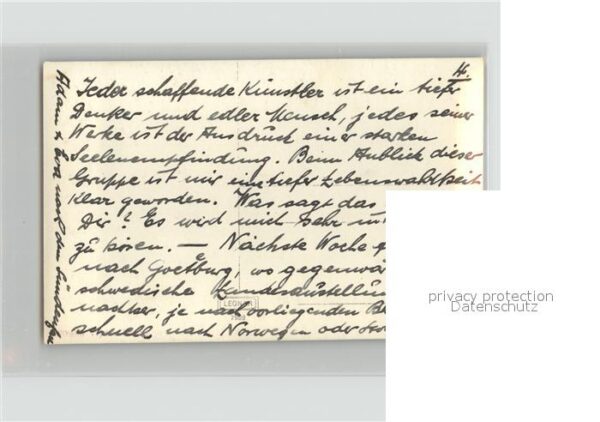 4.
Jeder schaffende Künstler ist ein tiefer
Denker und edler Mensch, jedes seiner
Werke ist der Ausdruck einer starken
Seelenempfindung. Beim Anblick dieser
Gruppe ist mir eine tiefer Lebenswahrheit
Klar geworden. Was sagt das
Dir? Es wird mich sehr
zu hören. — Nächste Woche
nach Goetburg, wo gegenwär
schwedische Landesaustellun
nachher, je nach vorliegenden
schnell nach Norwegen oder
Adam & Eva nach dem
LEONAR
privacy protection
Datenschutz